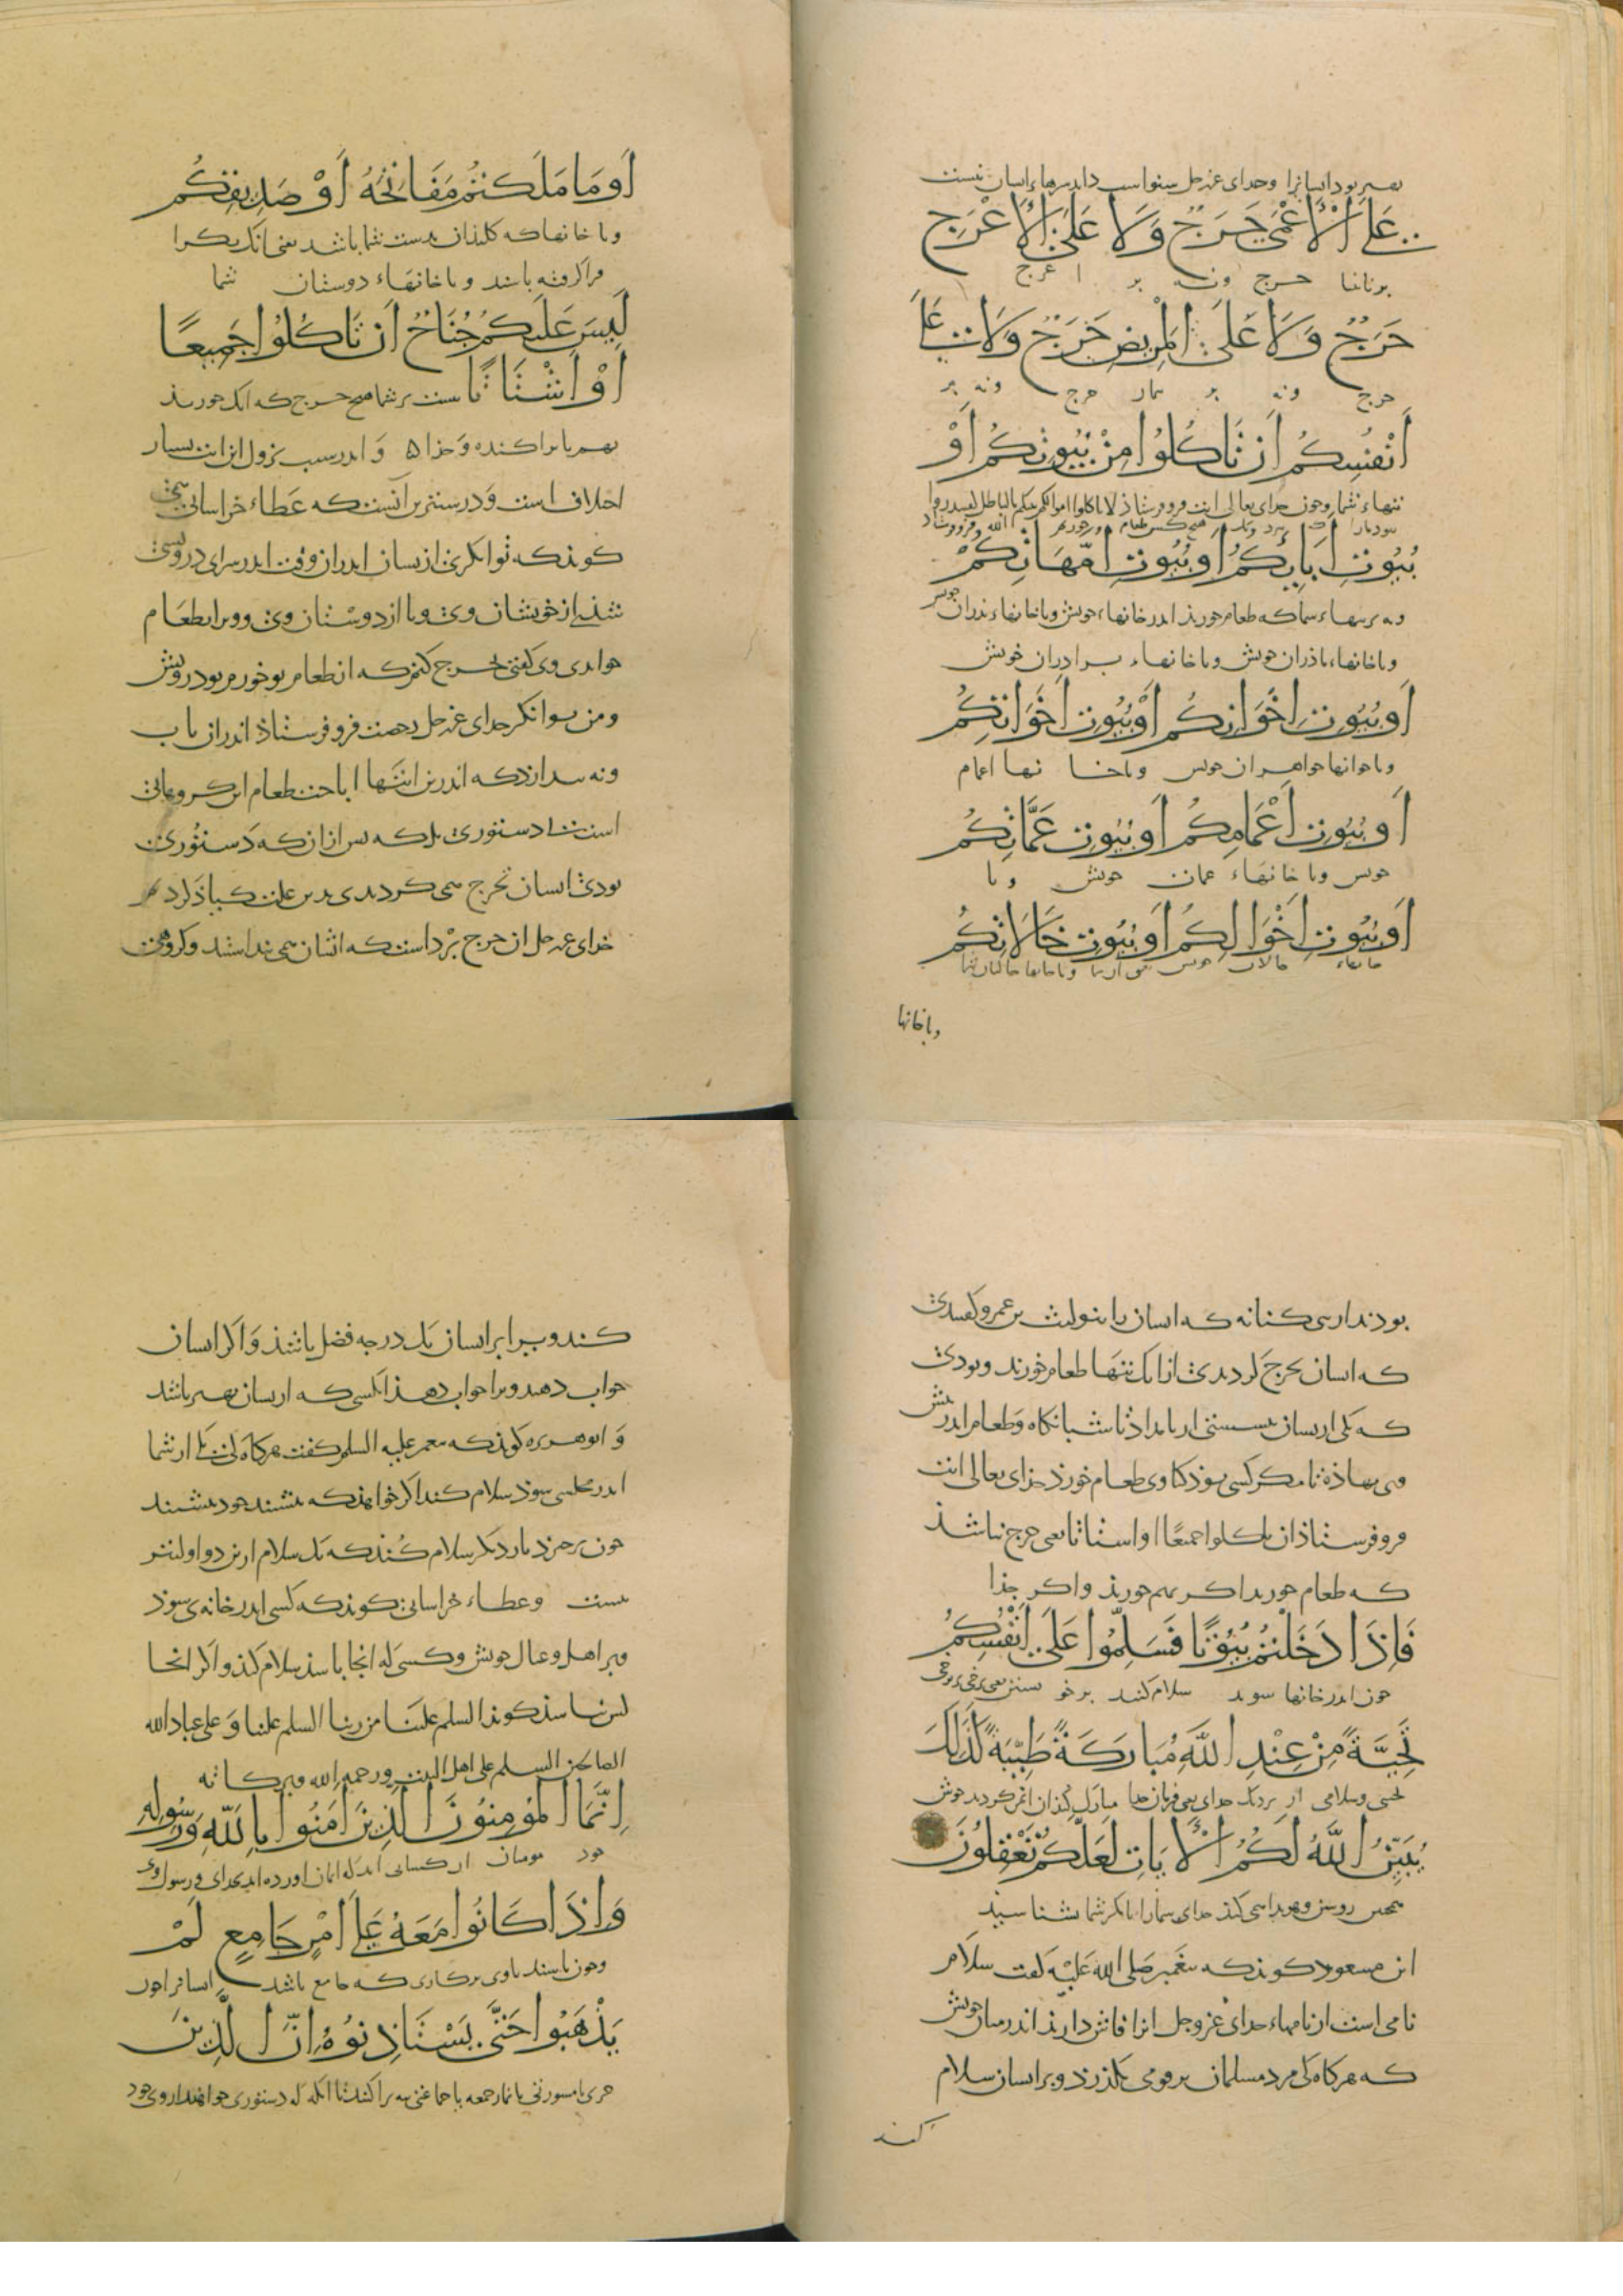 بهتر بود ایشانرا وخدای عزوجل شنواست داند سرهاء ایشان نیست
عَلَى الْأَعْمَى حَرَجٌ وَلَا عَلَى الْأَعْرَجِ
برنابینا حرج ونه بر اعرج
حَرَجٌ وَلَا عَلَى الْمَرِيضِ حَرَجٌ وَلَا عَلَى
حرج ونه بر بیمار حرج ونه بر
أَنْفُسِكُمْ أَنْ تَأْكُلُوا مِنْ بُيُوتِكُمْ أَوْ
تنهاء شما وجون خدای تعالی این ایت فروفرستاذ لا تاکلوا اموالکم بینکم بالباطل
بُيُوتِ آبَائِكُمْ أَوْ بُيُوتِ أُمَّهَاتِكُمْ
ونه برتنهاء شما که طعام خورید اندر خانهاء خویش ویا خانهاء بذران خویش
ویا خانهاء ماذران خویش ویا خانهاء برادران خویش
أَوْ بُيُوتِ إِخْوَانِكُمْ أَوْ بُيُوتِ أَخَوَاتِكُمْ
ویا خوانها خواهران خویش ویا خانها اعمام
أَوْ بُيُوتِ أَعْمَامِكُمْ أَوْ بُيُوتِ عَمَّاتِكُمْ
خویش ویا خانهاء عمات خویش ویا
أَوْ بُيُوتِ أَخْوَالِكُمْ أَوْ بُيُوتِ خَالَاتِكُمْ
خانهاء خالان خویش ویا خانها خالتان
ویا خانها
أَوْ مَا مَلَكْتُمْ مَفَاتِحَهُ أَوْ صَدِيقِكُمْ
ویا خانهاکه کلیذان بدست شما باشد یعنی انک یکرا
فراگرفته باشند ویا خانهاء دوستان شما
لَيْسَ عَلَيْكُمْ جُنَاحٌ أَنْ تَأْكُلُوا جَمِيعًا
أَوْ أَشْتَاتًا نیست برشما هیچ حرج که انک خورید
بهم یا براکنده وجذا ۵ و اندر سبب نزول این ایت بسیار
اختلاف است و درستترین آنست که عطاء خراسانی همی
کویذ که توانکری از یشان اندران وقت اندر سرای درویشی
شذی از خویشان وی ویا از دوستان وی و ویرا بطعام
خواندی وی کفتی تحرج کنم که از طعام تو خورم تو درویش
ومن توانکر خدای عزوجل رخصت فروفرستاذ اندران باب
ونه بندارذ که اندرین ایتها اباحت طعام این کروهان
است بی دستوری بل که بس ازان که دستوری
بودی ایشان تحرج همی کردندی بدین علت کی یاذ کرد
خدای عزوجل ان حرج برداست که ایشان همی بنداشتند وکروهی
بودند از بنی کنانه که ایشان را بنولیث بن عمرو کفتندی
که ایشان تحرج کردندی ازانک تنها طعام خورند وبودی
که یکی ازیشان بنشستی از بامداذ تا شبانکاه وطعام اندر بیش
وی نهاذه تا مکر کسی بوذ کبا وی طعام خورذ خدای تعالی این ایت
فروفرستاذ ان تاکلوا جمیعا او اشتاتا یعنی حرج نباشذ
که طعام خورید اکر بهم خورید واکر جذا
فَإِذَا دَخَلْتُمْ بُيُوتًا فَسَلِّمُوا عَلَى أَنْفُسِكُمْ
جون اندر خانها شوید سلام کنید بر خویشتن یعنی برخی بر برخی
تَحِيَّةً مِنْ عِنْدِ اللَّهِ مُبَارَكَةً طَيِّبَةً كَذَلِكَ
تحیتی وسلامی از نزدیک خدای یعنی فرمان خدا مبارک خوش
يُبَيِّنُ اللَّهُ لَكُمُ الْآيَاتِ لَعَلَّكُمْ تَعْقِلُونَ
همچنین روشن وهویدا همی کند خدای شما را تا مکر شما بشناسید
ابن مسعود کویذ که بیغمبر صلی الله علیه کفت سلام
نامی است از نامهاء خدای عزوجل انرا فاش دارید اندرمیان خویش
که هرکاه کی مرد مسلمان برقومی بکذرذ وبر ایشان سلام
کند
کند ویرا برایشان یک درجه فضل باشذ و اکر ایشان
جواب دهند ویرا جواب دهذ انکسی که ازیشان بهتر باشد
و ابوهریره کویذ که بیغمبر علیه السلم کفت هرکاه کی یکی ازشما
اندر مجلسی شوذ سلام کند اکر خواهذ که بنشیند خود بنشیند
جون برخیزد بار دیکر سلام کند که یک سلام ازین دو اولیتر
نیست وعطاء خراسانی کویذ که کسی اندر خانه‌ی شوذ
وبر اهل وعیال خویش وکسی که انجا باشد سلام کند و اکر انجا
کس نباشد کویذ السلم علینا من ربنا السلم علینا و علی عباد الله
الصالحین السلم علی اهل البیت ورحمه الله وبرکاته
إِنَّمَا الْمُؤْمِنُونَ الَّذِينَ آمَنُوا بِاللَّهِ وَرَسُولِهِ
خود مومنان ان کسانی اند که ایمان اورده اند بخدای ورسول وی
وَإِذَا كَانُوا مَعَهُ عَلَى أَمْرٍ جَامِعٍ لَمْ
وجون باشند باوی برکاری که جامع باشد ایشانرا جون
يَذْهَبُوا حَتَّى يَسْتَأْذِنُوهُ إِنَّ الَّذِينَ
حربی یا مشورتی یا نماز جمعه یا جماعتی نه براکنند تا انکه که دستوری خواهند ازوی خود